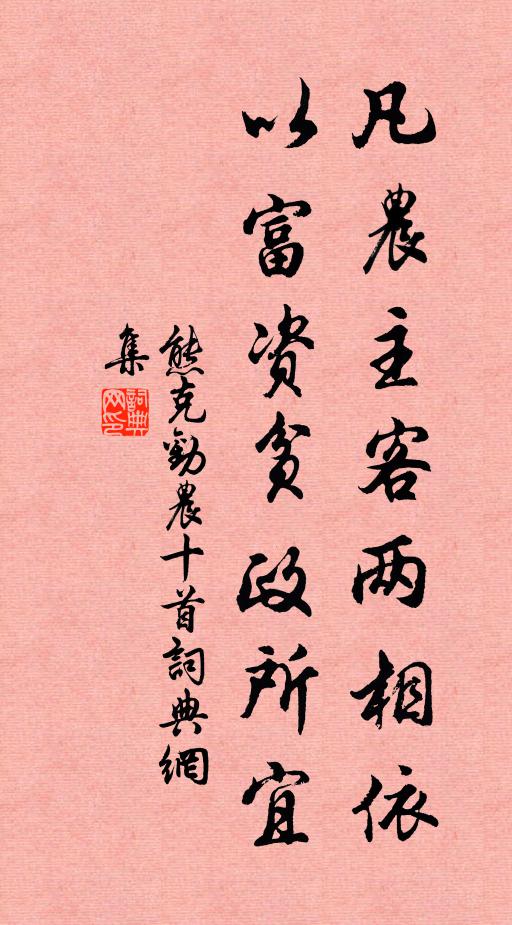 凡農主客两相依
以富资貧政所宜
熊克勸農十首詞典網
集
詞典
网印